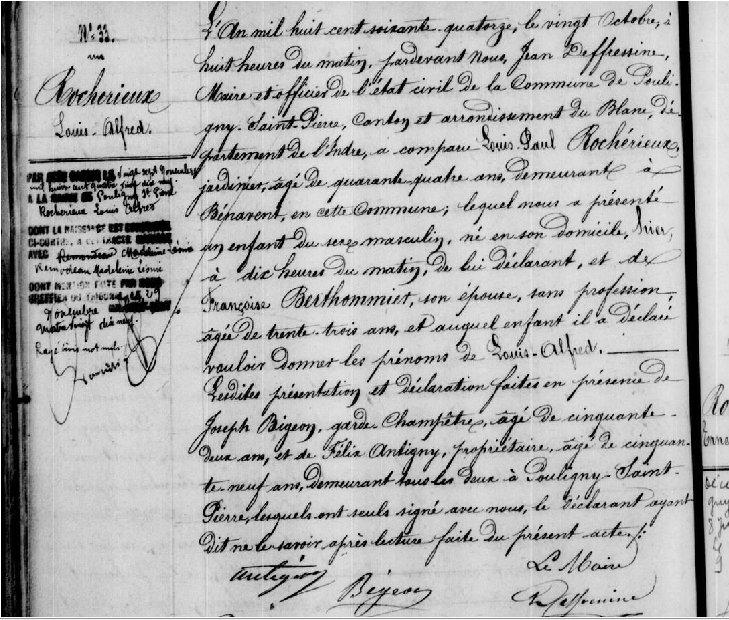 N° 33.
Rocherieux
Louis-Alfred.
PAR
vingt sept Novembre
mil huit cent quatre vingt dix neuf
A LA MAIRIE DE Pouligny St Pierre
Rocherieux Louis Alfred
DONT LA NAISSANCE EST
CI-CONTRE, A CONTRACTÉ MARIAGE
AVEC
Madeleine Léonie
DONT MENTION FAITE PAR NOUS
GREFFIER DU TRIBUNAL LE 29
Novembre
quatre vingt dix neuf.
Rayé mots nuls.
L'An mil huit cent soixante-quatorze, le vingt Octobre, à
huit heures du matin, pardevant Nous, Jean Deffressine,
Maire et officier de l'état civil de la Commune de Pouli-
gny-Saint-Pierre, Canton et arrondissement du Blanc, dé-
partement de l'Indre, a comparu Louis-Paul Rochérieux,
jardinier, âgé de quarante quatre ans, demeurant à
Bénavent, en cette Commune; lequel nous a présenté
un enfant du sexe masculin, né en son domicile, hier,
à dix heures du matin, de lui déclarant, et de
Françoise Berthommier, son épouse, sans profession
âgée de trente-trois ans, et auquel enfant il a déclaré
vouloir donner les prénoms de Louis-Alfred.
Lesdites présentation et déclaration faites en présence de
Joseph Bigeon, garde Champêtre, âgé de cinquante-
deux ans, et de Félix Antigny, propriétaire, âgé de cinquan-
te-neuf ans, demeurant tous les deux à Pouligny-Saint-
Pierre, lesquels ont seuls signé avec nous, le déclarant ayant
dit ne le savoir, après lecture faite du présent acte ./:
Le Maire
Antigny
Bigeon
Deffressine
Ro